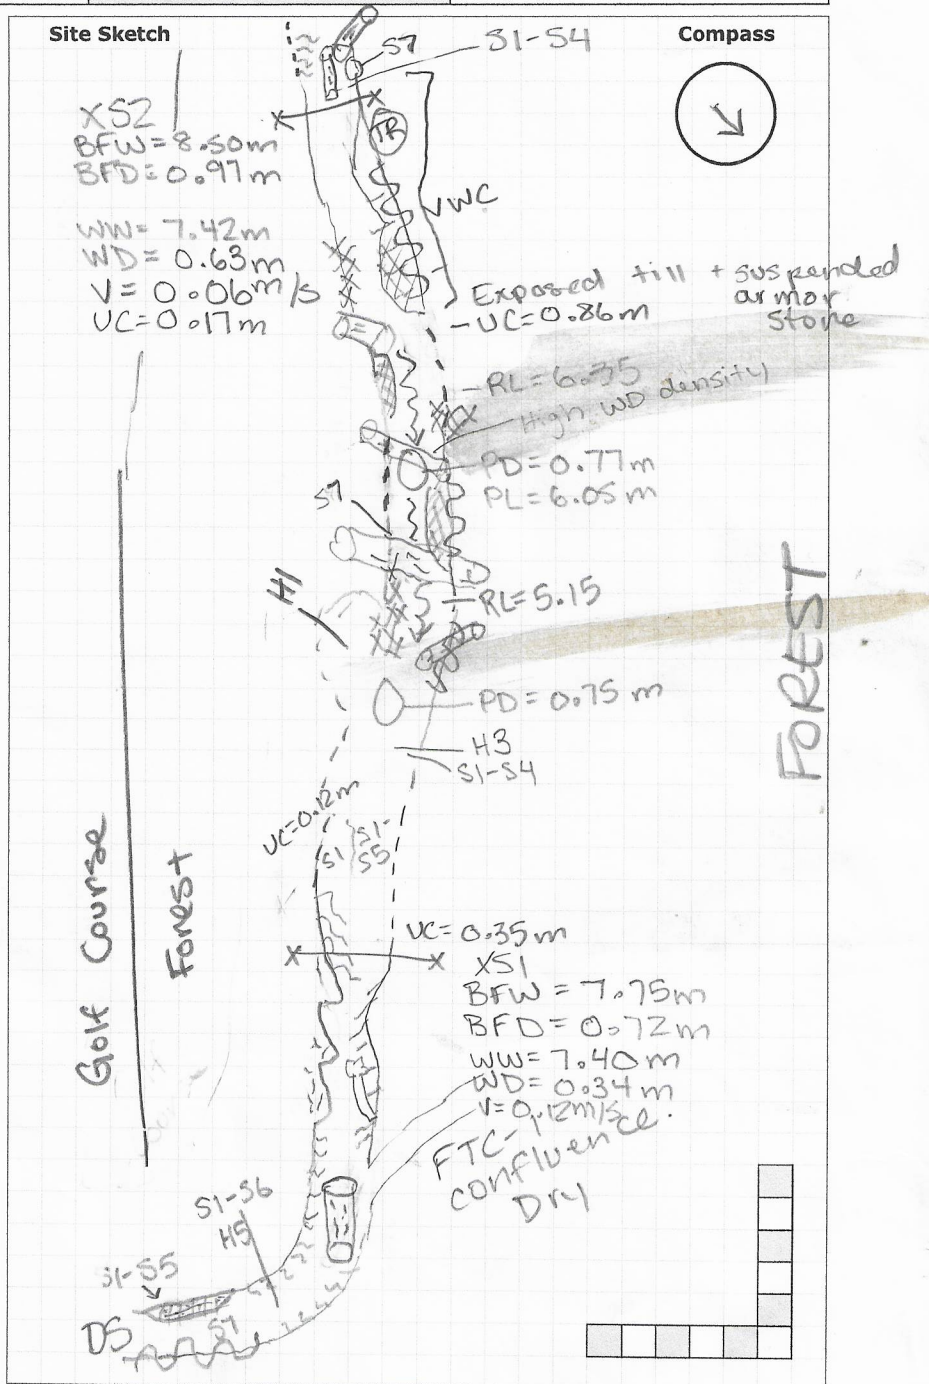 Site Sketch
Compass
S7
S1-S4
XS2
BFW = 8.50m
BFD = 0.97m
WW = 7.42m
WD = 0.63m
V = 0.06m/s
UC = 0.17m
TR
VWC
Exposed till + suspended
armor
stone
- UC = 0.86m
- RL = 6.35
High WD density
PD = 0.77m
PL = 6.05m
S7
H1
RL = 5.15
PD = 0.75 m
H3
S1-S4
FOREST
UC = 0.12m
S1
S1-
S5
Golf Course
Forest
UC = 0.35m
XS1
BFW = 7.75m
BFD = 0.72m
WW = 7.40m
WD = 0.34m
V = 0.12m/s
FTC-1
confluence
Dry
S1-S6
H5
S1-S5
S7
DS